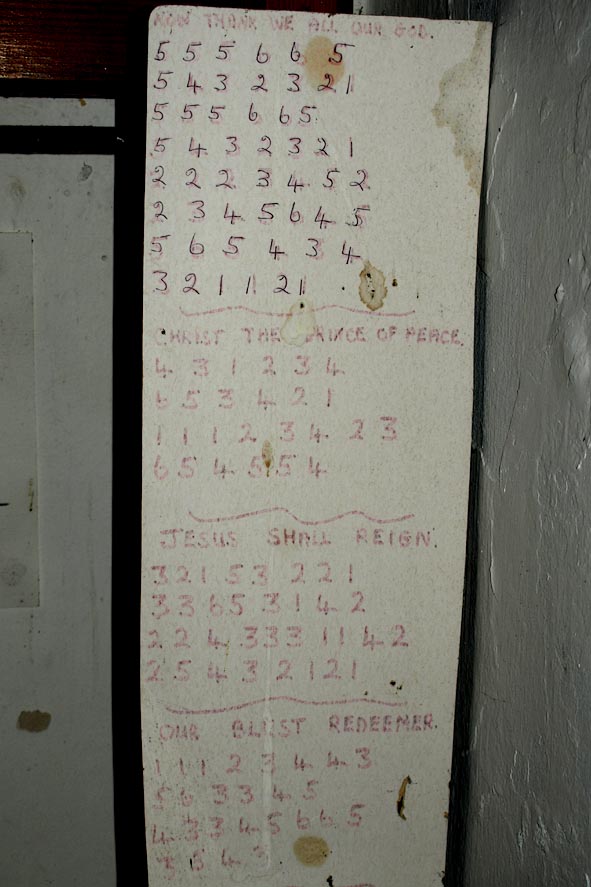 NOW THANK WE ALL OUR GOD.
5 5 5 6 6 5
5 4 3 2 3 2 1
5 5 5 6 6 5
5 4 3 2 3 2 1
2 2 2 3 4 5 2
2 3 4 5 6 4 5
5 6 5 4 3 4
3 2 1 1 2 1
CHRIST THE PRINCE OF PEACE.
4 3 1 2 3 4
6 5 3 4 2 1
1 1 1 2 3 4 2 3
6 5 4 5 5 4
JESUS SHALL REIGN.
3 2 1 5 3 2 2 1
3 3 6 5 3 1 4 2
2 2 4 3 3 3 1 1 4 2
2 5 4 3 2 1 2 1
OUR BLEST REDEEMER.
1 1 1 2 3 4 4 3
5 6 3 3 4 5
4 3 3 4 5 6 6 5
5 4